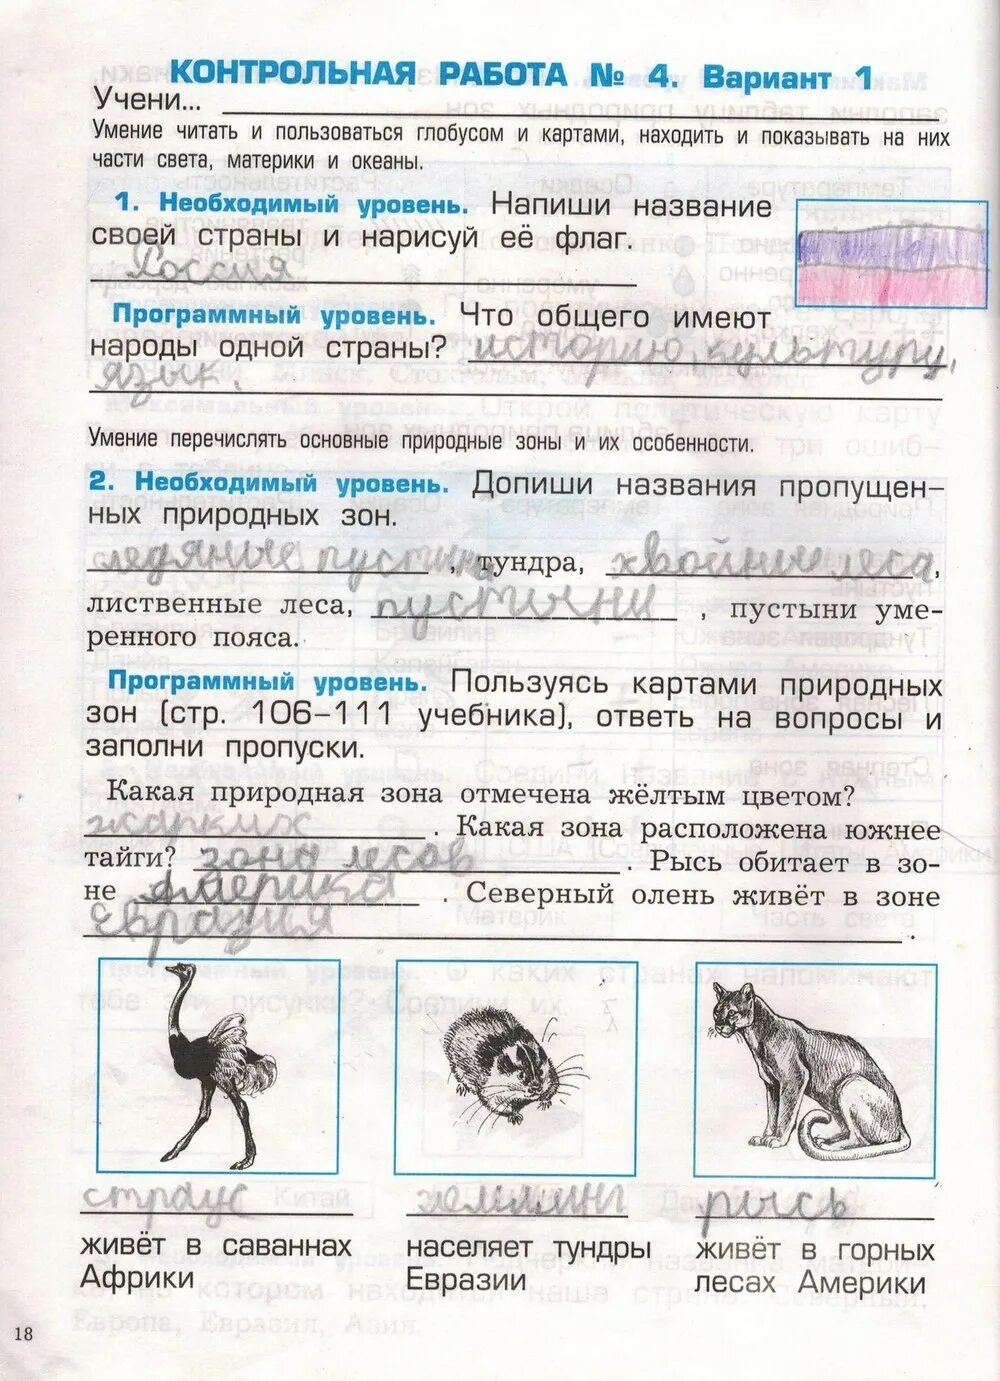 КОНТРОЛЬНАЯ РАБОТА № 4. Вариант 1
Учени...
Умение читать и пользоваться глобусом и картами, находить и показывать на них
части света, материки и океаны.
1. Необходимый уровень. Напиши название
своей страны и нарисуй её флаг.
Россия
Программный уровень. Что общего имеют
народы одной страны? историю, культуру,
язык.
Умение перечислять основные природные зоны и их особенности.
2. Необходимый уровень. Допиши названия пропущен-
ных природных зон.
ледяные пустыни, тундра, хвойные леса,
лиственные леса, пустыни, пустыни уме-
ренного пояса.
Программный уровень. Пользуясь картами природных
зон (стр. 106-111 учебника), ответь на вопросы и
заполни пропуски.
Какая природная зона отмечена жёлтым цветом?
жарких. Какая зона расположена южнее
тайги? зоны лесов. Рысь обитает в зо-
не Америка. Северный олень живёт в зоне
Евразия.
страус лемминг рысь
живёт в саваннах населяет тундры живёт в горных
Африки Евразии лесах Америки
18